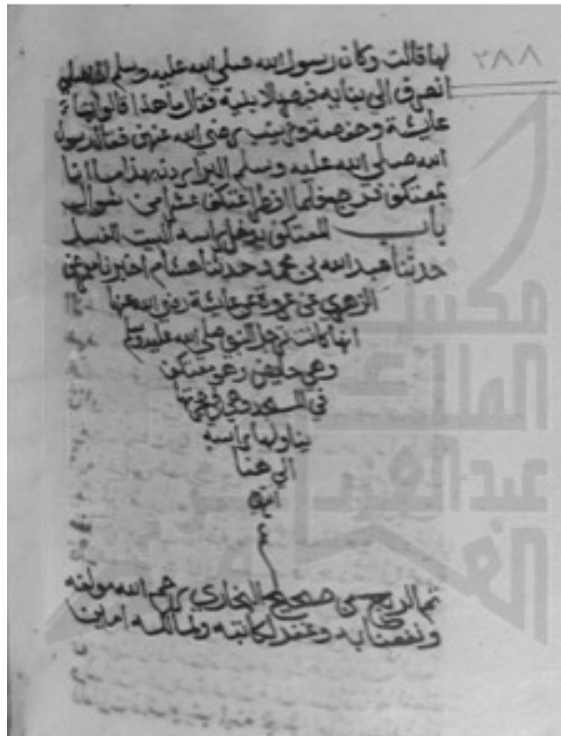 ٣٨٨
لها قالت وكان رسول الله صلي الله عليه وسلم اذا صلي
انصرف الي بنايه فبصر الابنية فقال ما هذا قالوا بناء
عايشة وحفصة وزينب رضي الله عنهن فقال رسول
الله صلي الله عليه وسلم البر اردن بهذا ما انا
بمعتكف فرجع فلما افطر اعتكف عشرا من شوال
باب المعتكف يدخل راسه البيت للغسل
حدثنا عبد الله بن محمد حدثنا هشام اخبرنا معمر عن
الزهري عن عروة عن عايشة رضي الله عنها
انها كانت ترجل النبي صلي الله عليه وسلم
وهي حايض وهو معتكف
في المسجد وهي في حجرتها
يناولها راسه
الي هنا
انتهي
تم الربع من صحيح البخاري رحم الله مولفه
ونفعنا به وغفر لكاتبه ولمالكه امين
مكتبة
الملك
عبدالعزيز